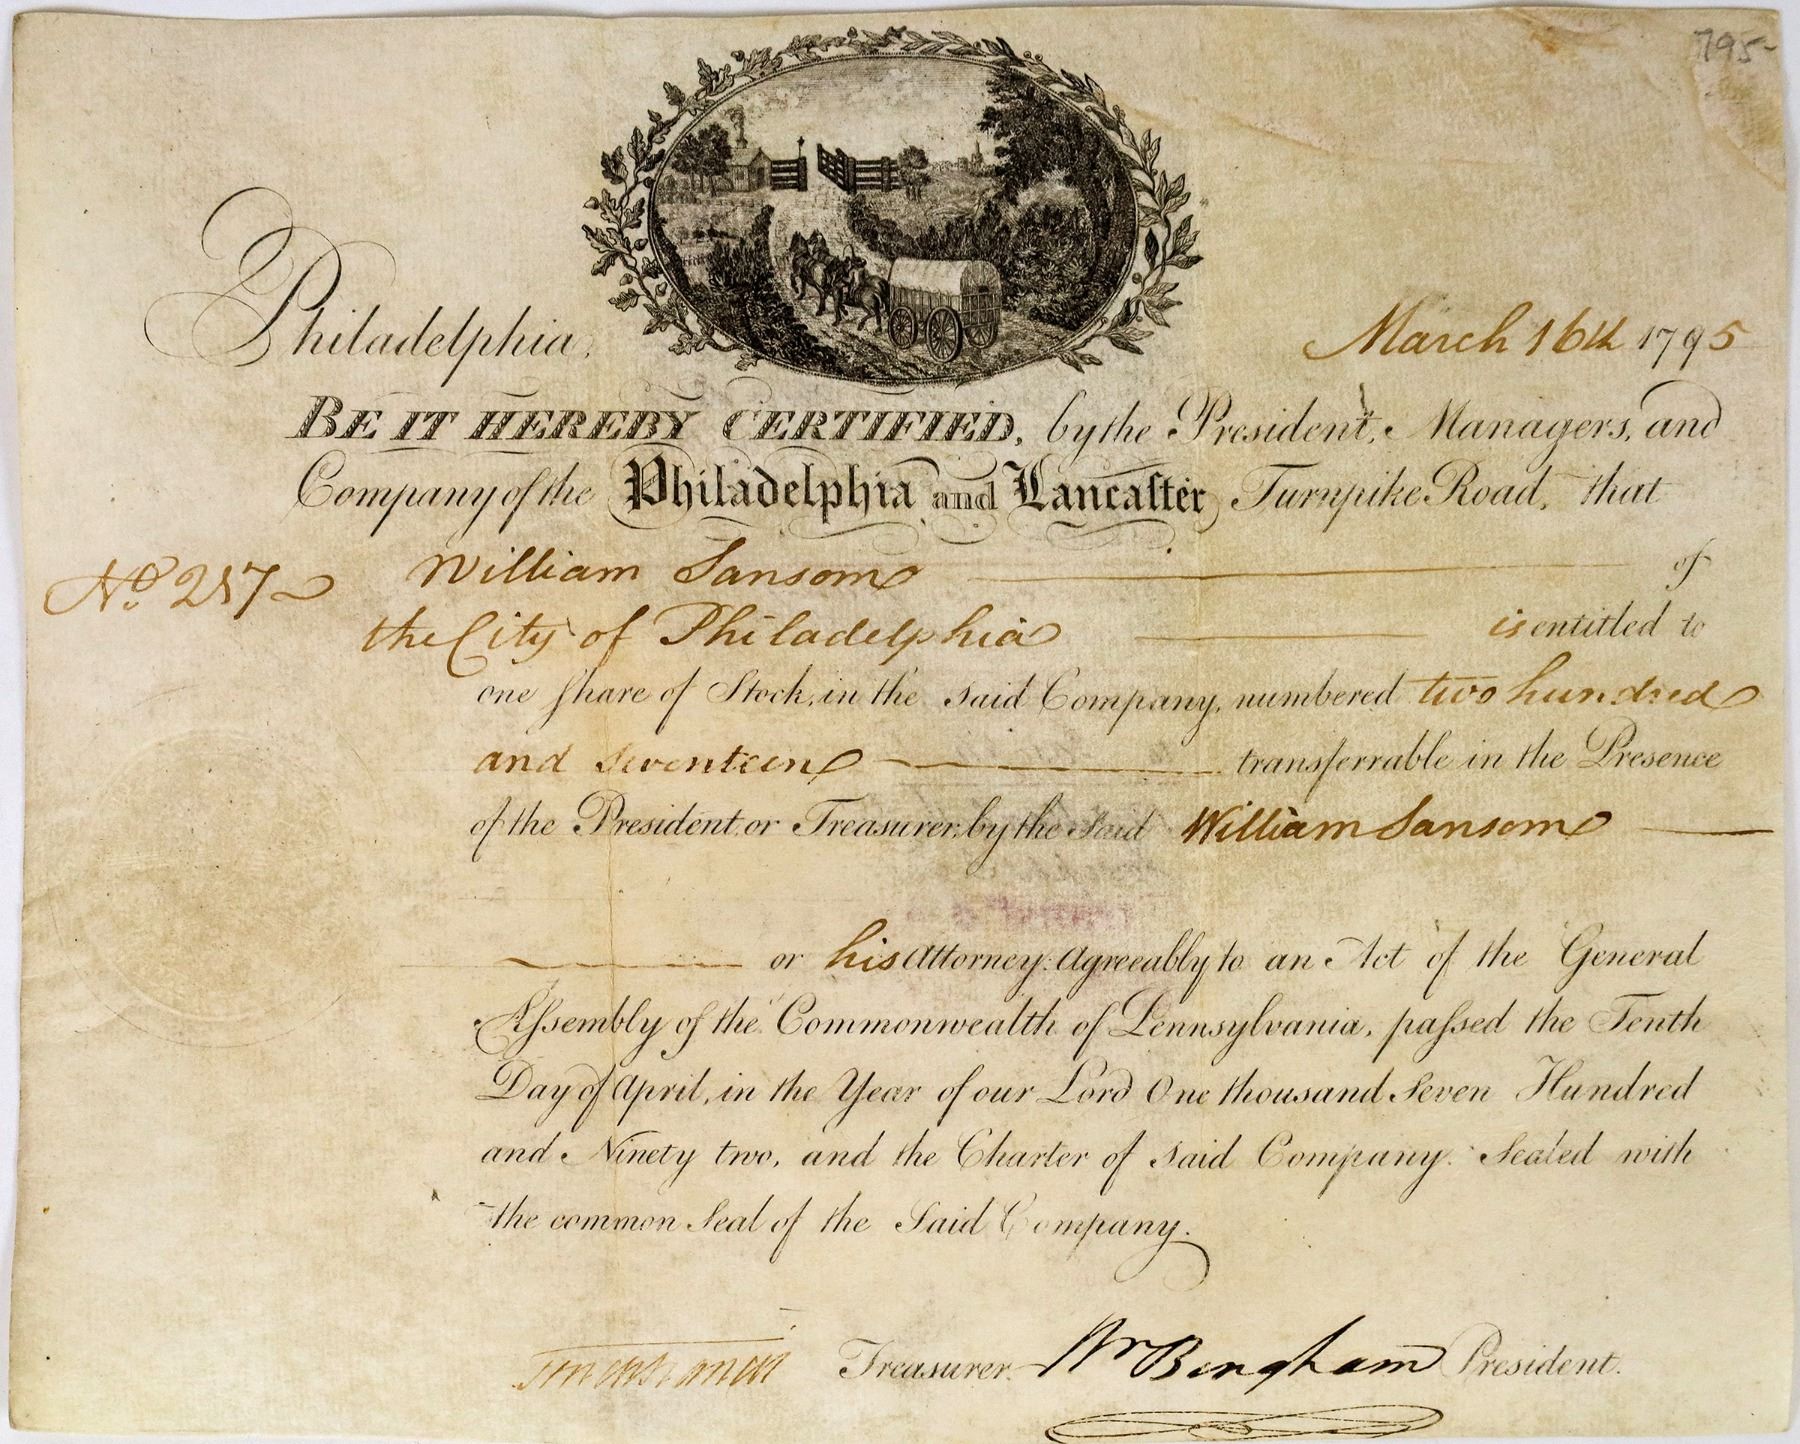 795-
Philadelphia, March 16th 1795
BE IT HEREBY CERTIFIED, by the President, Managers, and
Company of the Philadelphia and Lancaſter Turnpike Road, that
No. 217 William Sansom of
the City of Philadelphia is entitled to
one ſhare of Stock, in the said Company, numbered two hundred
and seventeen transferrable in the Presence
of the President or Treasurer, by the Said William Sansom
or his Attorney: Agreeably to an Act of the General
Aſsembly of the Commonwealth of Pennsylvania, paſsed the Tenth
Day of April, in the Year of our Lord One thousand Seven Hundred
and Ninety two, and the Charter of said Company. Sealed with
the common Seal of the Said Company.
Treasurer. Wm Bingham President.